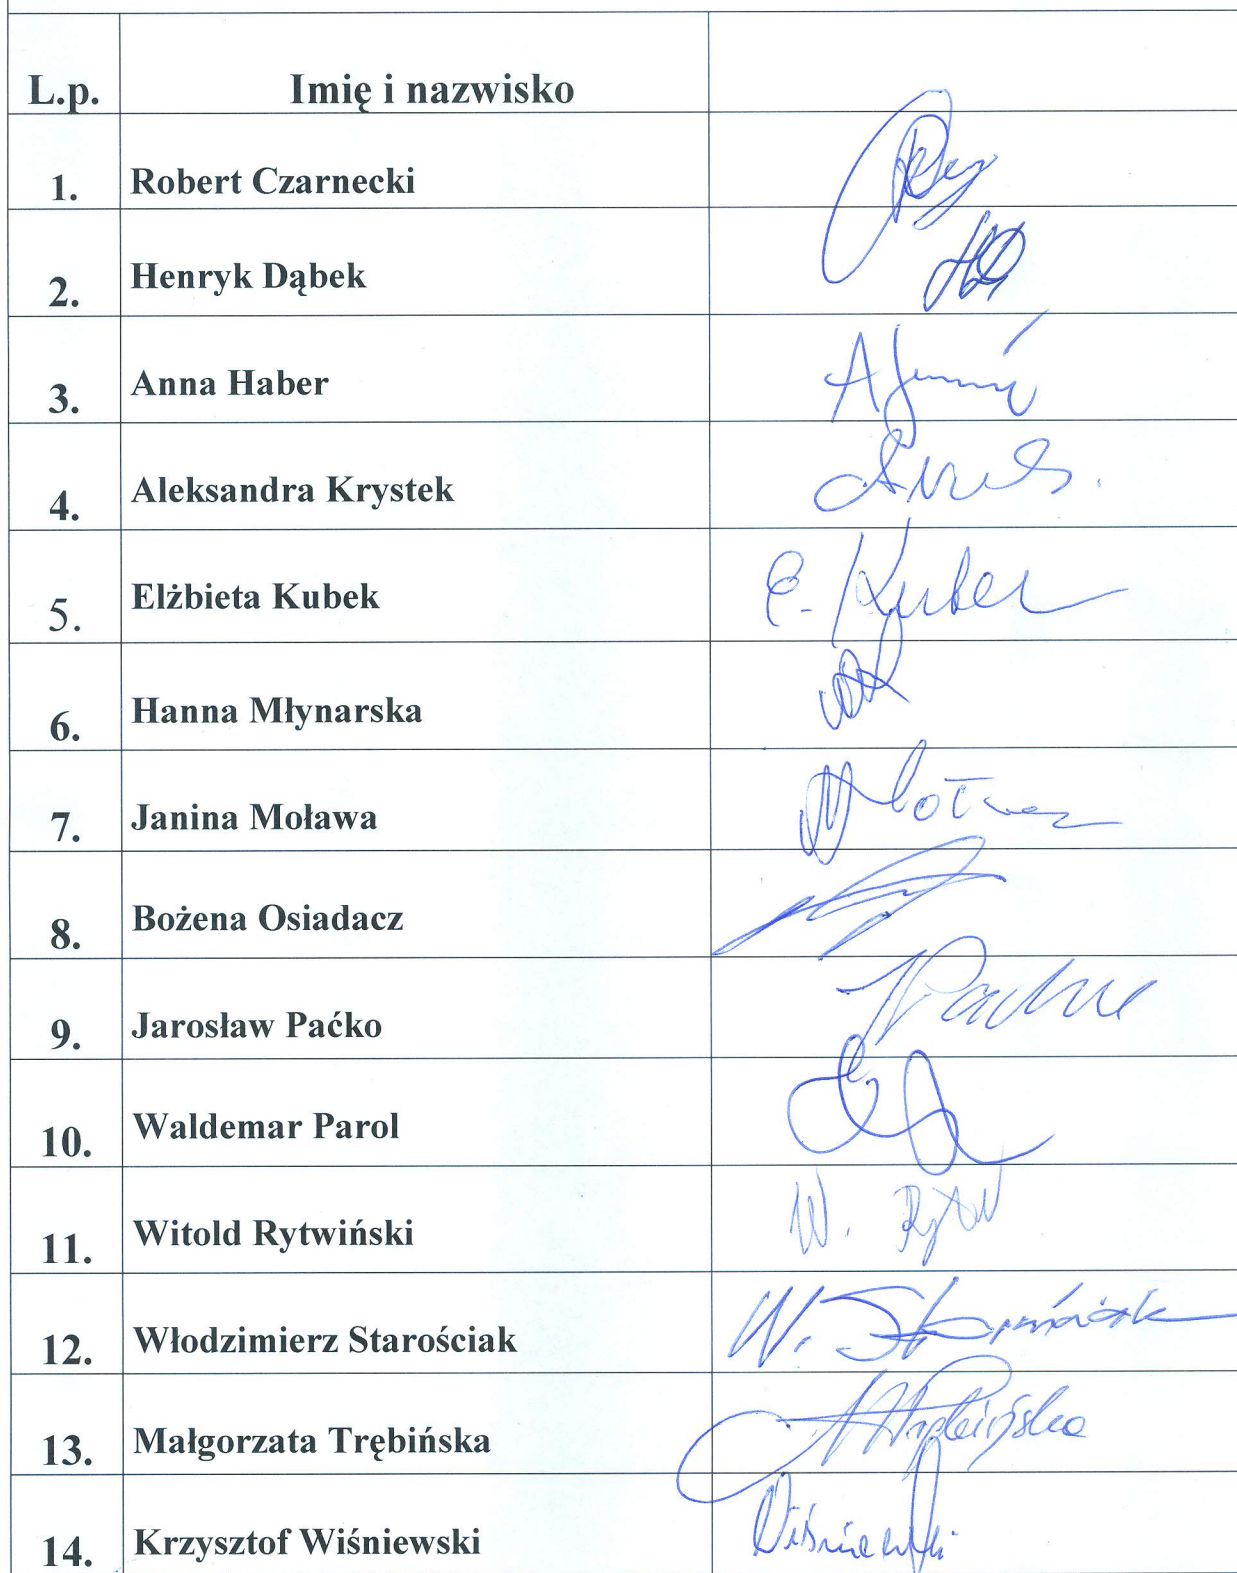 L.p. Imię i nazwisko
1. Robert Czarnecki
2. Henryk Dąbek
3. Anna Haber
4. Aleksandra Krystek
5. Elżbieta Kubek E. Kubek
6. Hanna Młynarska
7. Janina Moława
8. Bożena Osiadacz
9. Jarosław Paćko
10. Waldemar Parol
11. Witold Rytwiński W.
12. Włodzimierz Starościak W. Starościak
13. Małgorzata Trębińska
14. Krzysztof Wiśniewski Wiśniewski